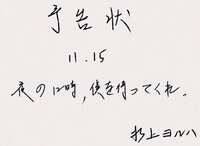 予告状
11.15
夜の12時,僕を待ってくれ。
杉上ヨルハ